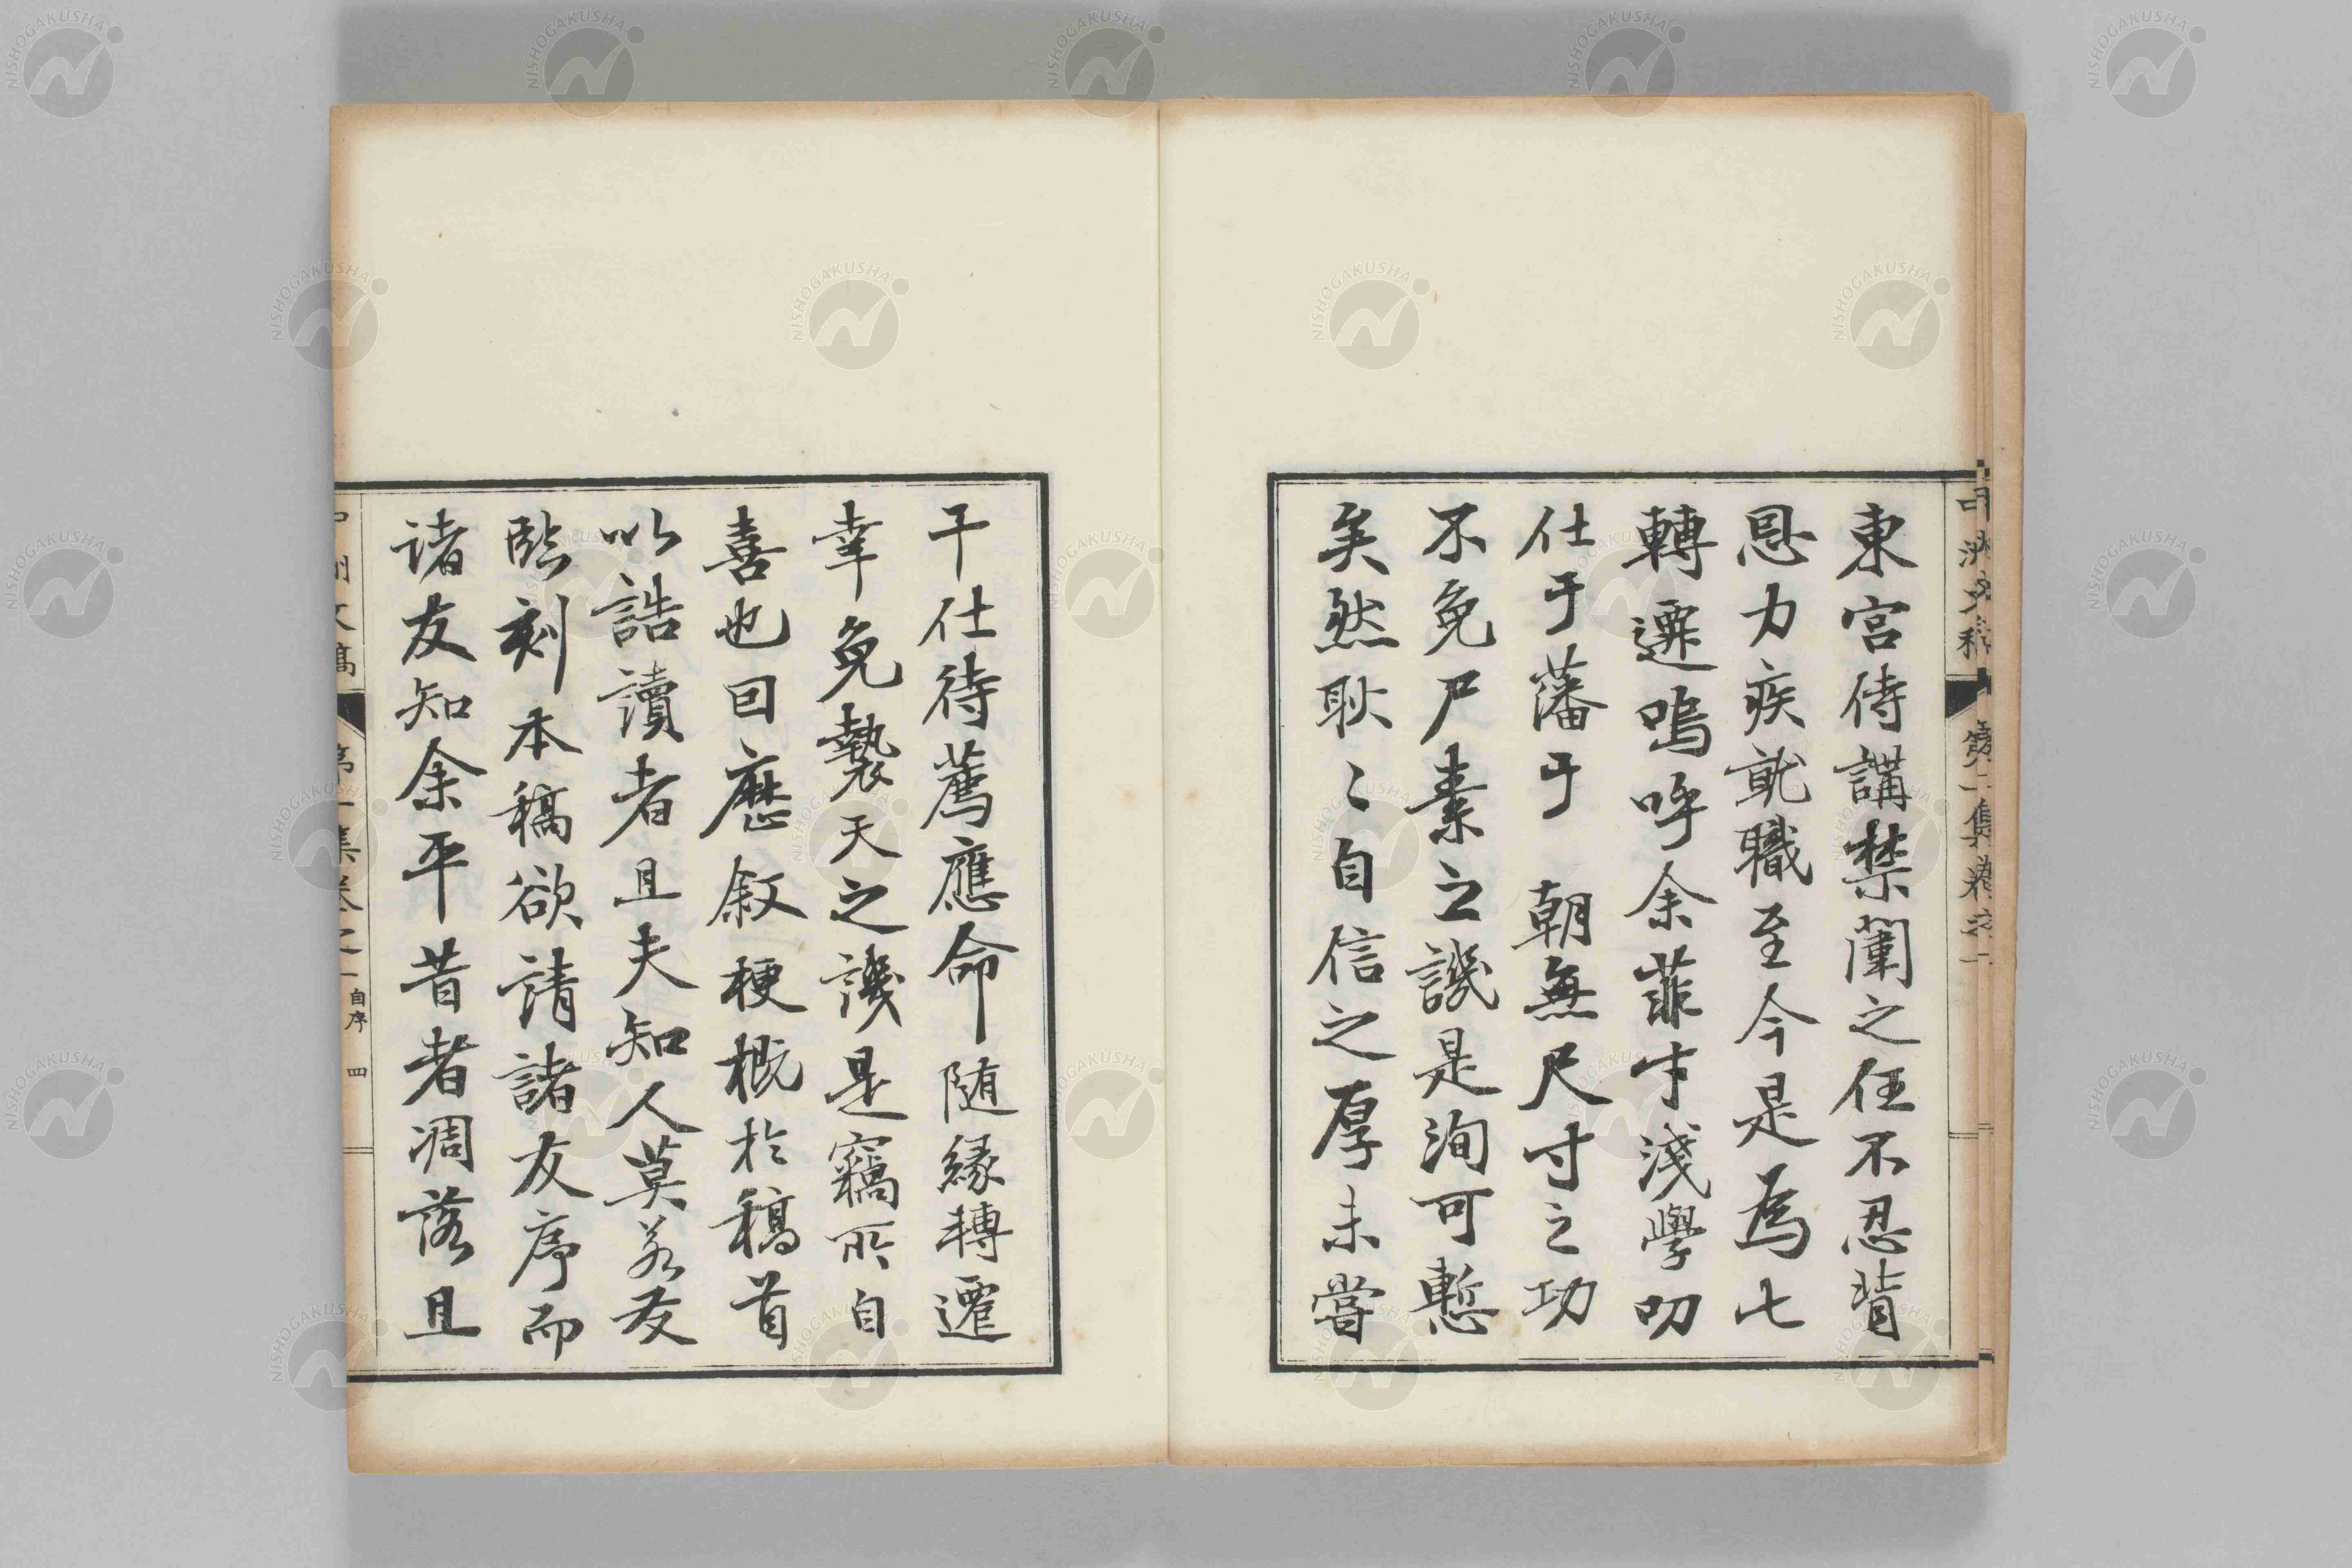 東宮侍講禁闈之任不忍背
恩力疾就職至今是為七
轉遷嗚呼余菲才淺學叨
仕于藩于 朝無尺寸之功
不免尸素之譏是洵可慙
矣然耿〻自信之厚未嘗
干仕待薦應命随縁轉遷
幸免褻天之譏是竊所自
喜也因歴叙梗概於稿首
以誥讀者且夫知人莫若友
臨刻本稿欲請諸友序而
諸友知余平昔者凋落且
中洲文稿
自序 四
NISHOGAKUSHA